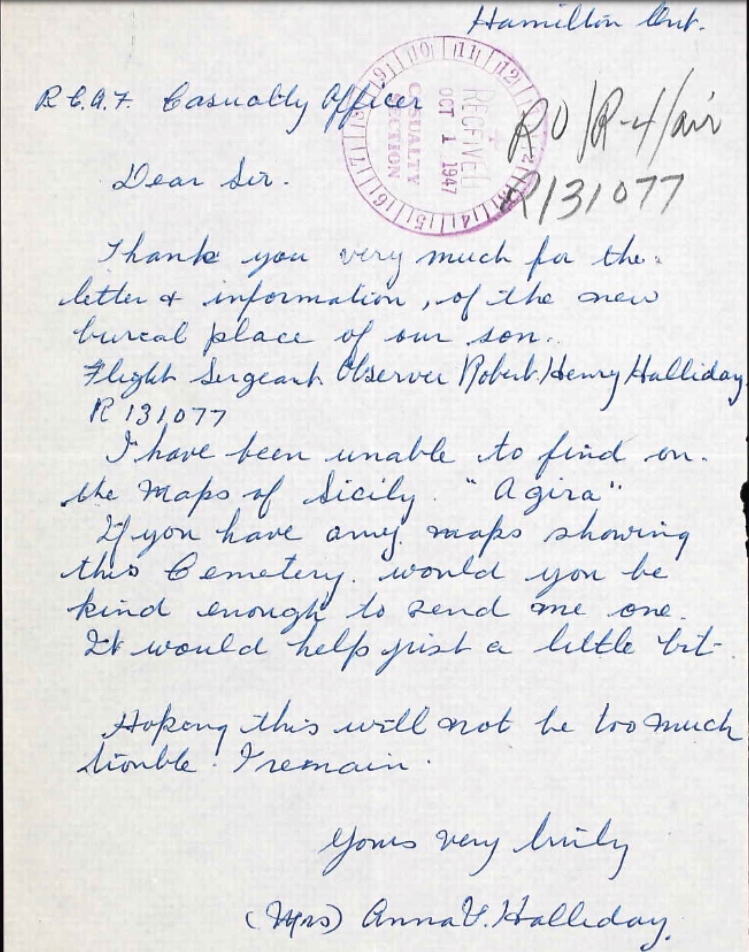 Hamilton Ont.
R.C.A.F. Casualty Officer
RECEIVED
OCT 1 1947
CASUALTY
SECTION
RO/R-4/air
R131077
Dear Sir.
Thank you very much for the
letter & information, of the new
bureal place of our son.
Flight Sergeant. Observer Robert. Henry Halliday
R 131077
I have been unable to find on.
the Maps of Sicily. "Agira"
If you have any maps showing
this Cemetery. would you be
kind enough to send me one.
It would help just a little bit.
Hoping this will not be too much
trouble. I remain.
Yours very truly
(Mrs) Anna V. Halliday.